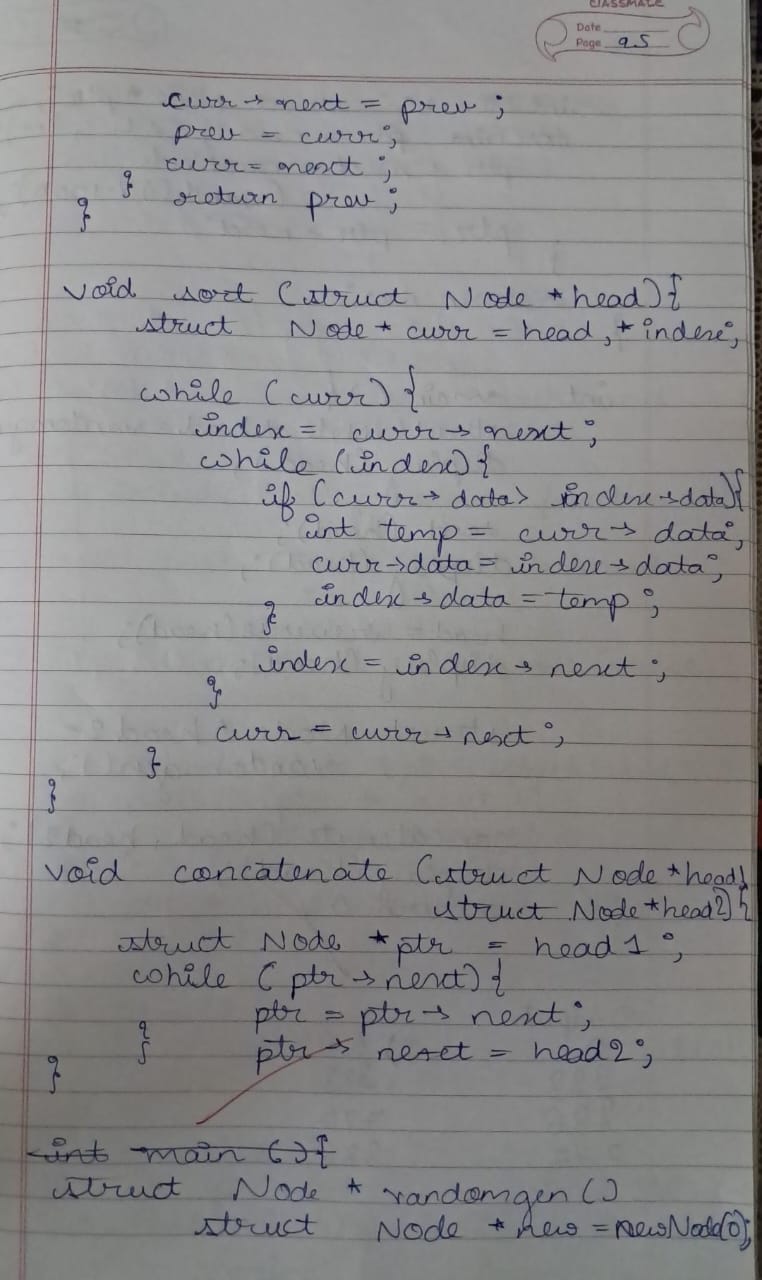 CLASSMATE
Date
Page 95
curr → next = prev ;
prev = curr ;
curr = next ;
} return prev ;
}
void sort (struct Node *head) {
struct Node * curr = head , * index ;
while (curr) {
index = curr → next ;
while (index) {
if (curr → data > index → data) {
int temp = curr → data ;
curr → data = index → data ;
index → data = temp ;
}
index = index → next ;
}
curr = curr → next ;
}
}
void concatenate (struct Node *head1
struct Node *head2) {
struct Node *ptr = head 1 ;
while ( ptr → next) {
ptr = ptr → next ;
} ptr → next = head2 ;
}
int main () {
struct Node * randomgen ()
struct Node * new = newNode(0);